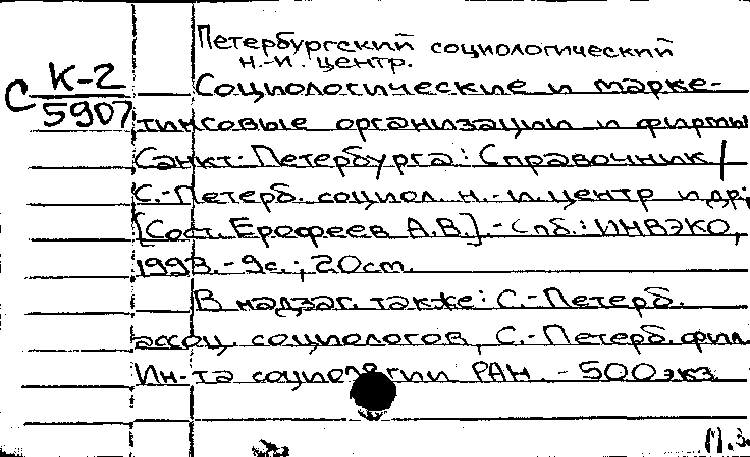 Петербургский социологический
н.-и. центр.
С К-2
5907
Социологические и марке-
тинговые организации и фирмы
Санкт-Петербурга: Справочник /
С.-Петерб. социол. н.-и. центр и др.;
[Сост. Ерофеев А.В.]. - Спб.: ИНВЭКО,
1993. - 9с.; 20cm.
В надзаг. также: С.-Петерб.
ассоц. социологов, С.-Петерб. фил.
Ин-та социологии РАН. - 500 экз.